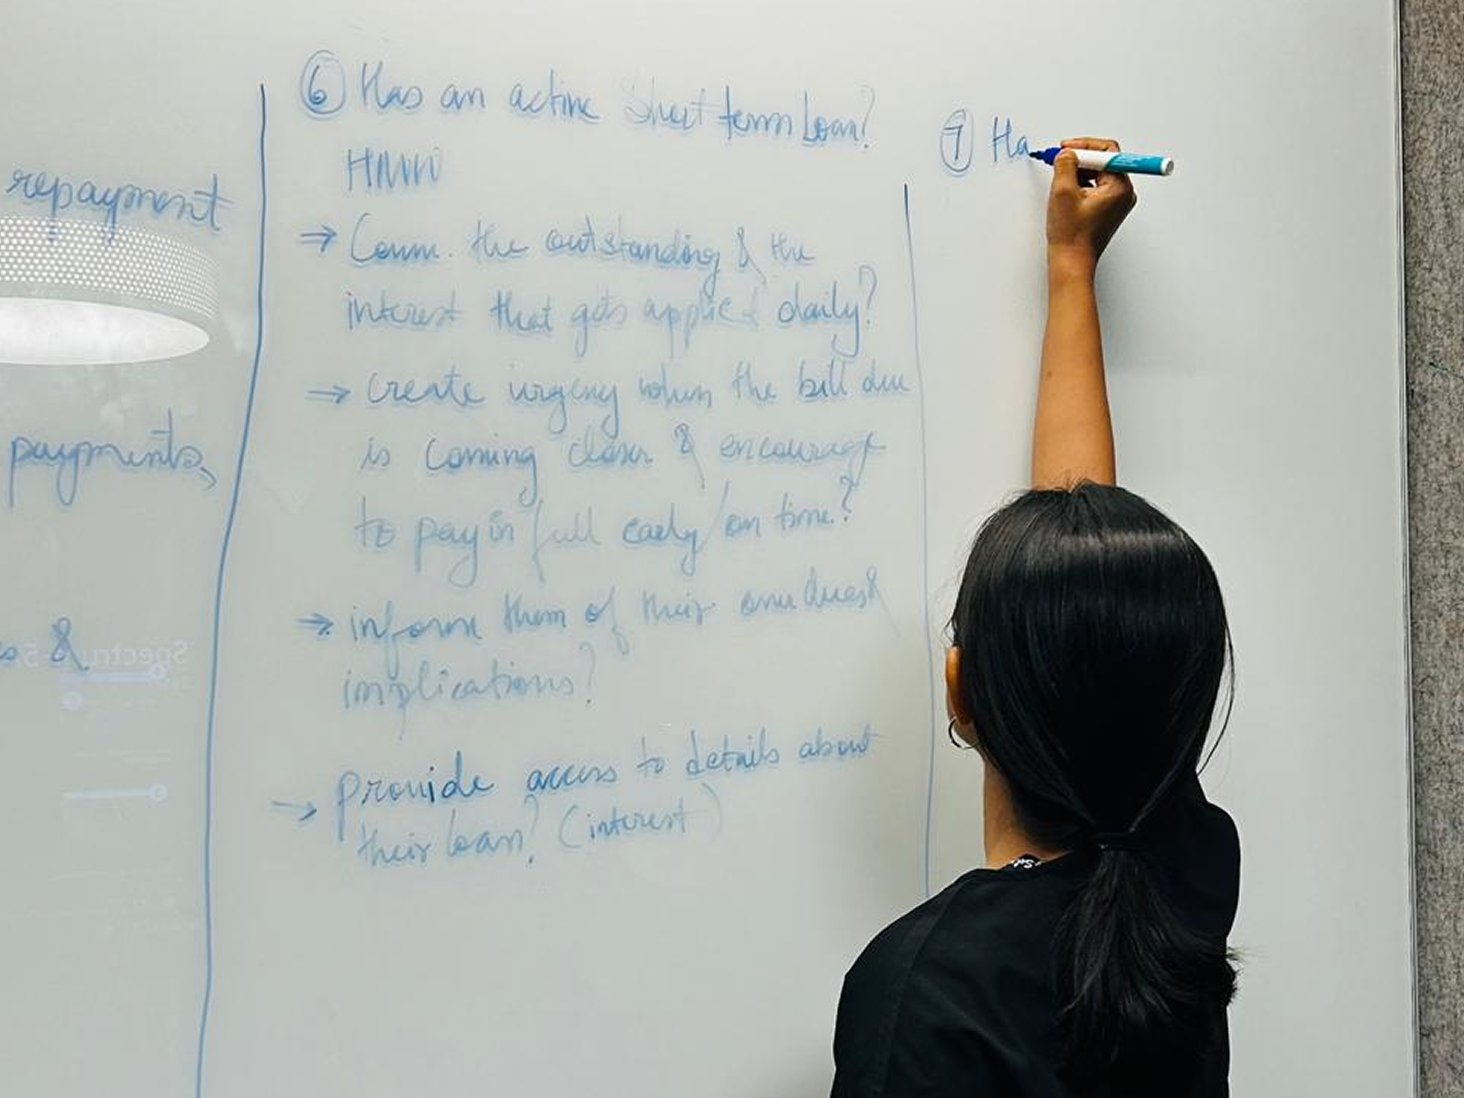 repayment
payments,
s &
⑥ Has an active Short term loan?
HMW
⇒ Comm. the outstanding & the
interest that gets applied daily?
⇒ create urgency when the bill due
is coming closer & encourage
to pay in full early/on time?
⇒ inform them of their overdues &
implications?
→ provide access to details about
their loan? (interest)
⑦ Ha